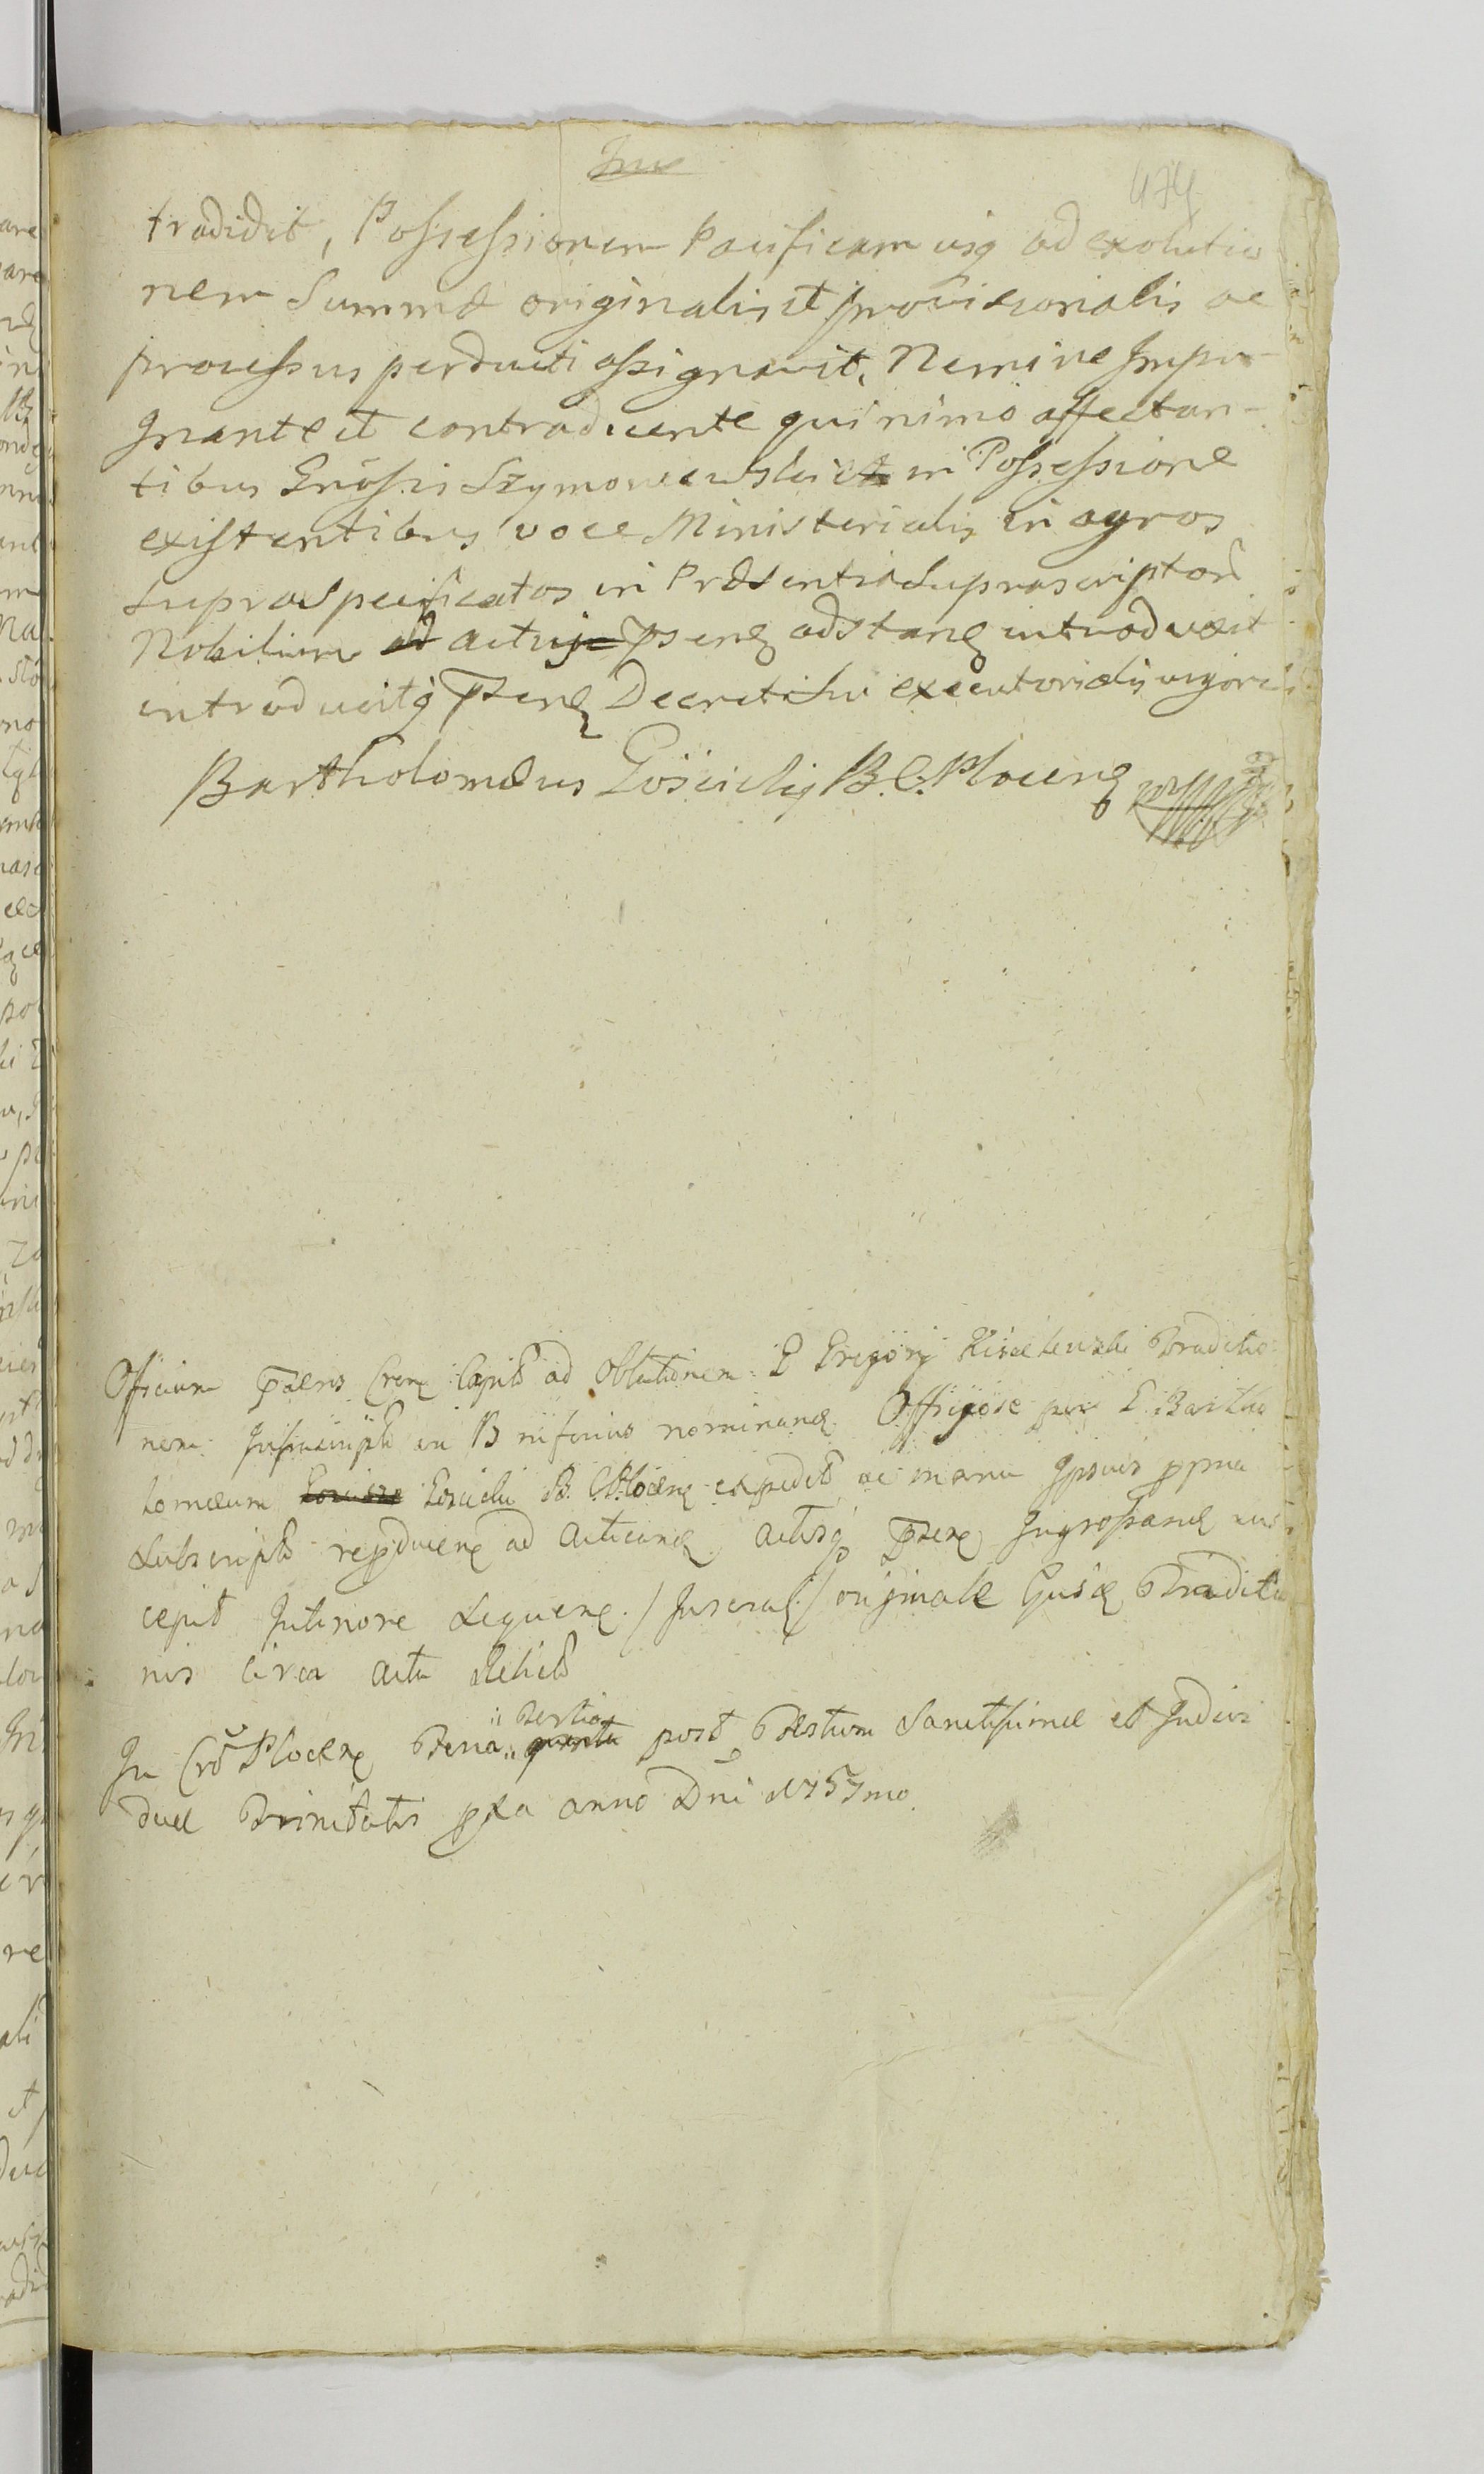 474
tradidit, Possessionem Pacificam usq ad exolutio
nem Summæ originalis et provisionalis ac
processus perducti assignavit, Nemine Impu-
gnante et contradicente quinimo affectan-
tibus Gnosis Szymonewski in Possessione
existentibus voce Ministerialis in agros
supraspecificatos in Præsentia Suprascriptor
Nobilium actui psenz adstanz introduxit
introducitq psenz Decreti sui executorialis vigore
Bartholomæus Gościcki B. C. Plocenz
Officium psens Crense Capit ad oblationem G Gregorij Traditio
nem Infrascript in B inferius nominanz Offigiose per G Bartho
lomæum Gościcki B. C. Plocenz expedit ac manu Ipsius ppria
Subscript repducenz ad Acticanz Actisq psenz Ingrossanz sus
cepit sequenz / Inseratz / originale Ejusd Traditio
nis circa acta
In Cro Plocenz Feria tertia post Festum Sanctissimæ et Indivi
duæ Trinitatis pxa anno Dni 1757mo